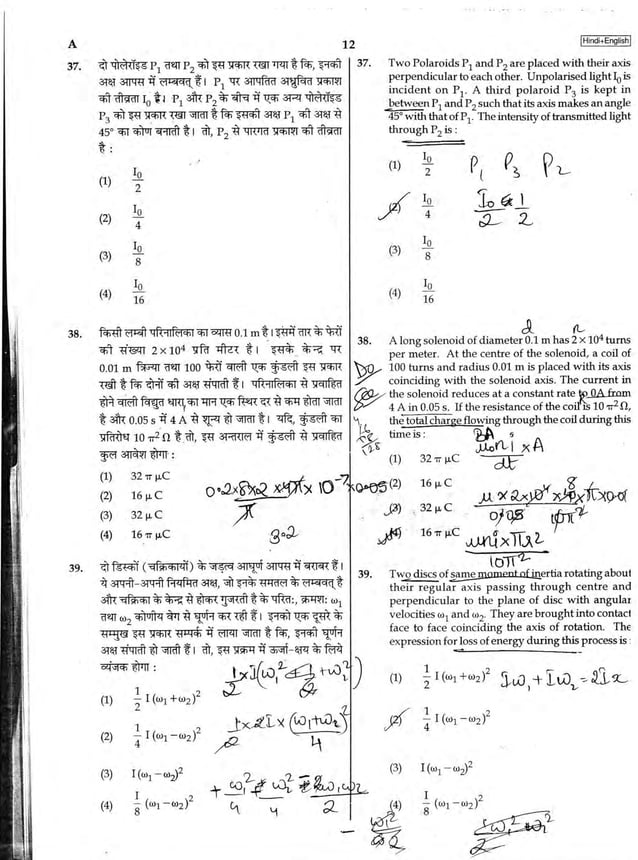 A
12
Hindi+English
37. दो पोलेरॉइड P₁ तथा P₂ को इस प्रकार रखा गया है कि, इनकी
अक्ष आपस में लम्बवत् हैं। P₁ पर आपतित अध्रुवित प्रकाश
की तीव्रता I₀ है। P₁ और P₂ के बीच में एक अन्य पोलेरॉइड
P₃ को इस प्रकार रखा जाता है कि इसकी अक्ष P₁ की अक्ष से
45° का कोण बनाती है। तो, P₂ से पारगत प्रकाश की तीव्रता
है :
(1) I₀/2
(2) I₀/4
(3) I₀/8
(4) I₀/16
38. किसी लम्बी परिनालिका का व्यास 0.1 m है। इसमें तार के फेरों
की संख्या 2×10⁴ प्रति मीटर है। इसके केन्द्र पर
0.01 m त्रिज्या तथा 100 फेरों वाली एक कुंडली इस प्रकार
रखी है कि दोनों की अक्ष संपाती हैं। परिनालिका से प्रवाहित
होने वाली विद्युत धारा का मान एक स्थिर दर से कम होता जाता
है और 0.05 s में 4 A से शून्य हो जाता है। यदि, कुंडली का
प्रतिरोध 10 π² Ω है तो, इस अन्तराल में कुंडली से प्रवाहित
कुल आवेश होगा :
(1) 32 π μC
(2) 16 μ C
(3) 32 μ C
(4) 16 π μC
39. दो डिस्कों (चक्रिकायों) के जड़त्व आघूर्ण आपस में बराबर हैं।
ये अपनी-अपनी नियमित अक्ष, जो इनके समतल के लम्बवत् है
और चक्रिका के केन्द्र से होकर गुजरती है के परितः, क्रमशः ω₁
तथा ω₂ कोणीय वेग से घूर्णन कर रही हैं। इनको एक दूसरे के
सम्मुख इस प्रकार सम्पर्क में लाया जाता है कि, इनकी घूर्णन
अक्ष संपाती हो जाती हैं। तो, इस प्रक्रम में ऊर्जा-क्षय के लिये
व्यंजक होगा :
(1) 1/2 I (ω₁+ω₂)²
(2) 1/4 I (ω₁−ω₂)²
(3) I(ω₁−ω₂)²
(4) I/8 (ω₁−ω₂)²
37. Two Polaroids P₁ and P₂ are placed with their axis
perpendicular to each other. Unpolarised light I₀ is
incident on P₁. A third polaroid P₃ is kept in
between P₁ and P₂ such that its axis makes an angle
45° with that of P₁. The intensity of transmitted light
through P₂ is :
(1) I₀/2
P₁ P₃ P₂
(2) I₀/4
(3) I₀/8
(4) I₀/16
d n
38. A long solenoid of diameter 0.1 m has 2 × 10⁴ turns
per meter. At the centre of the solenoid, a coil of
100 turns and radius 0.01 m is placed with its axis
coinciding with the solenoid axis. The current in
the solenoid reduces at a constant rate to 0A from
4 A in 0.05 s. If the resistance of the coil is 10 π² Ω,
the total charge flowing through the coil during this
time is :
(1) 32 π μC
(2) 16 μ C
(3) 32 μ C
(4) 16 π μC
3.2
10π²
39. Two discs of same moment of inertia rotating about
their regular axis passing through centre and
perpendicular to the plane of disc with angular
velocities ω₁ and ω₂. They are brought into contact
face to face coinciding the axis of rotation. The
expression for loss of energy during this process is :
(1) 1/2 I (ω₁+ω₂)²
Iω₁ + Iω₂ = 2Ix
(2) 1/4 I (ω₁−ω₂)²
(3) I (ω₁−ω₂)²
(4) I/8 (ω₁−ω₂)²